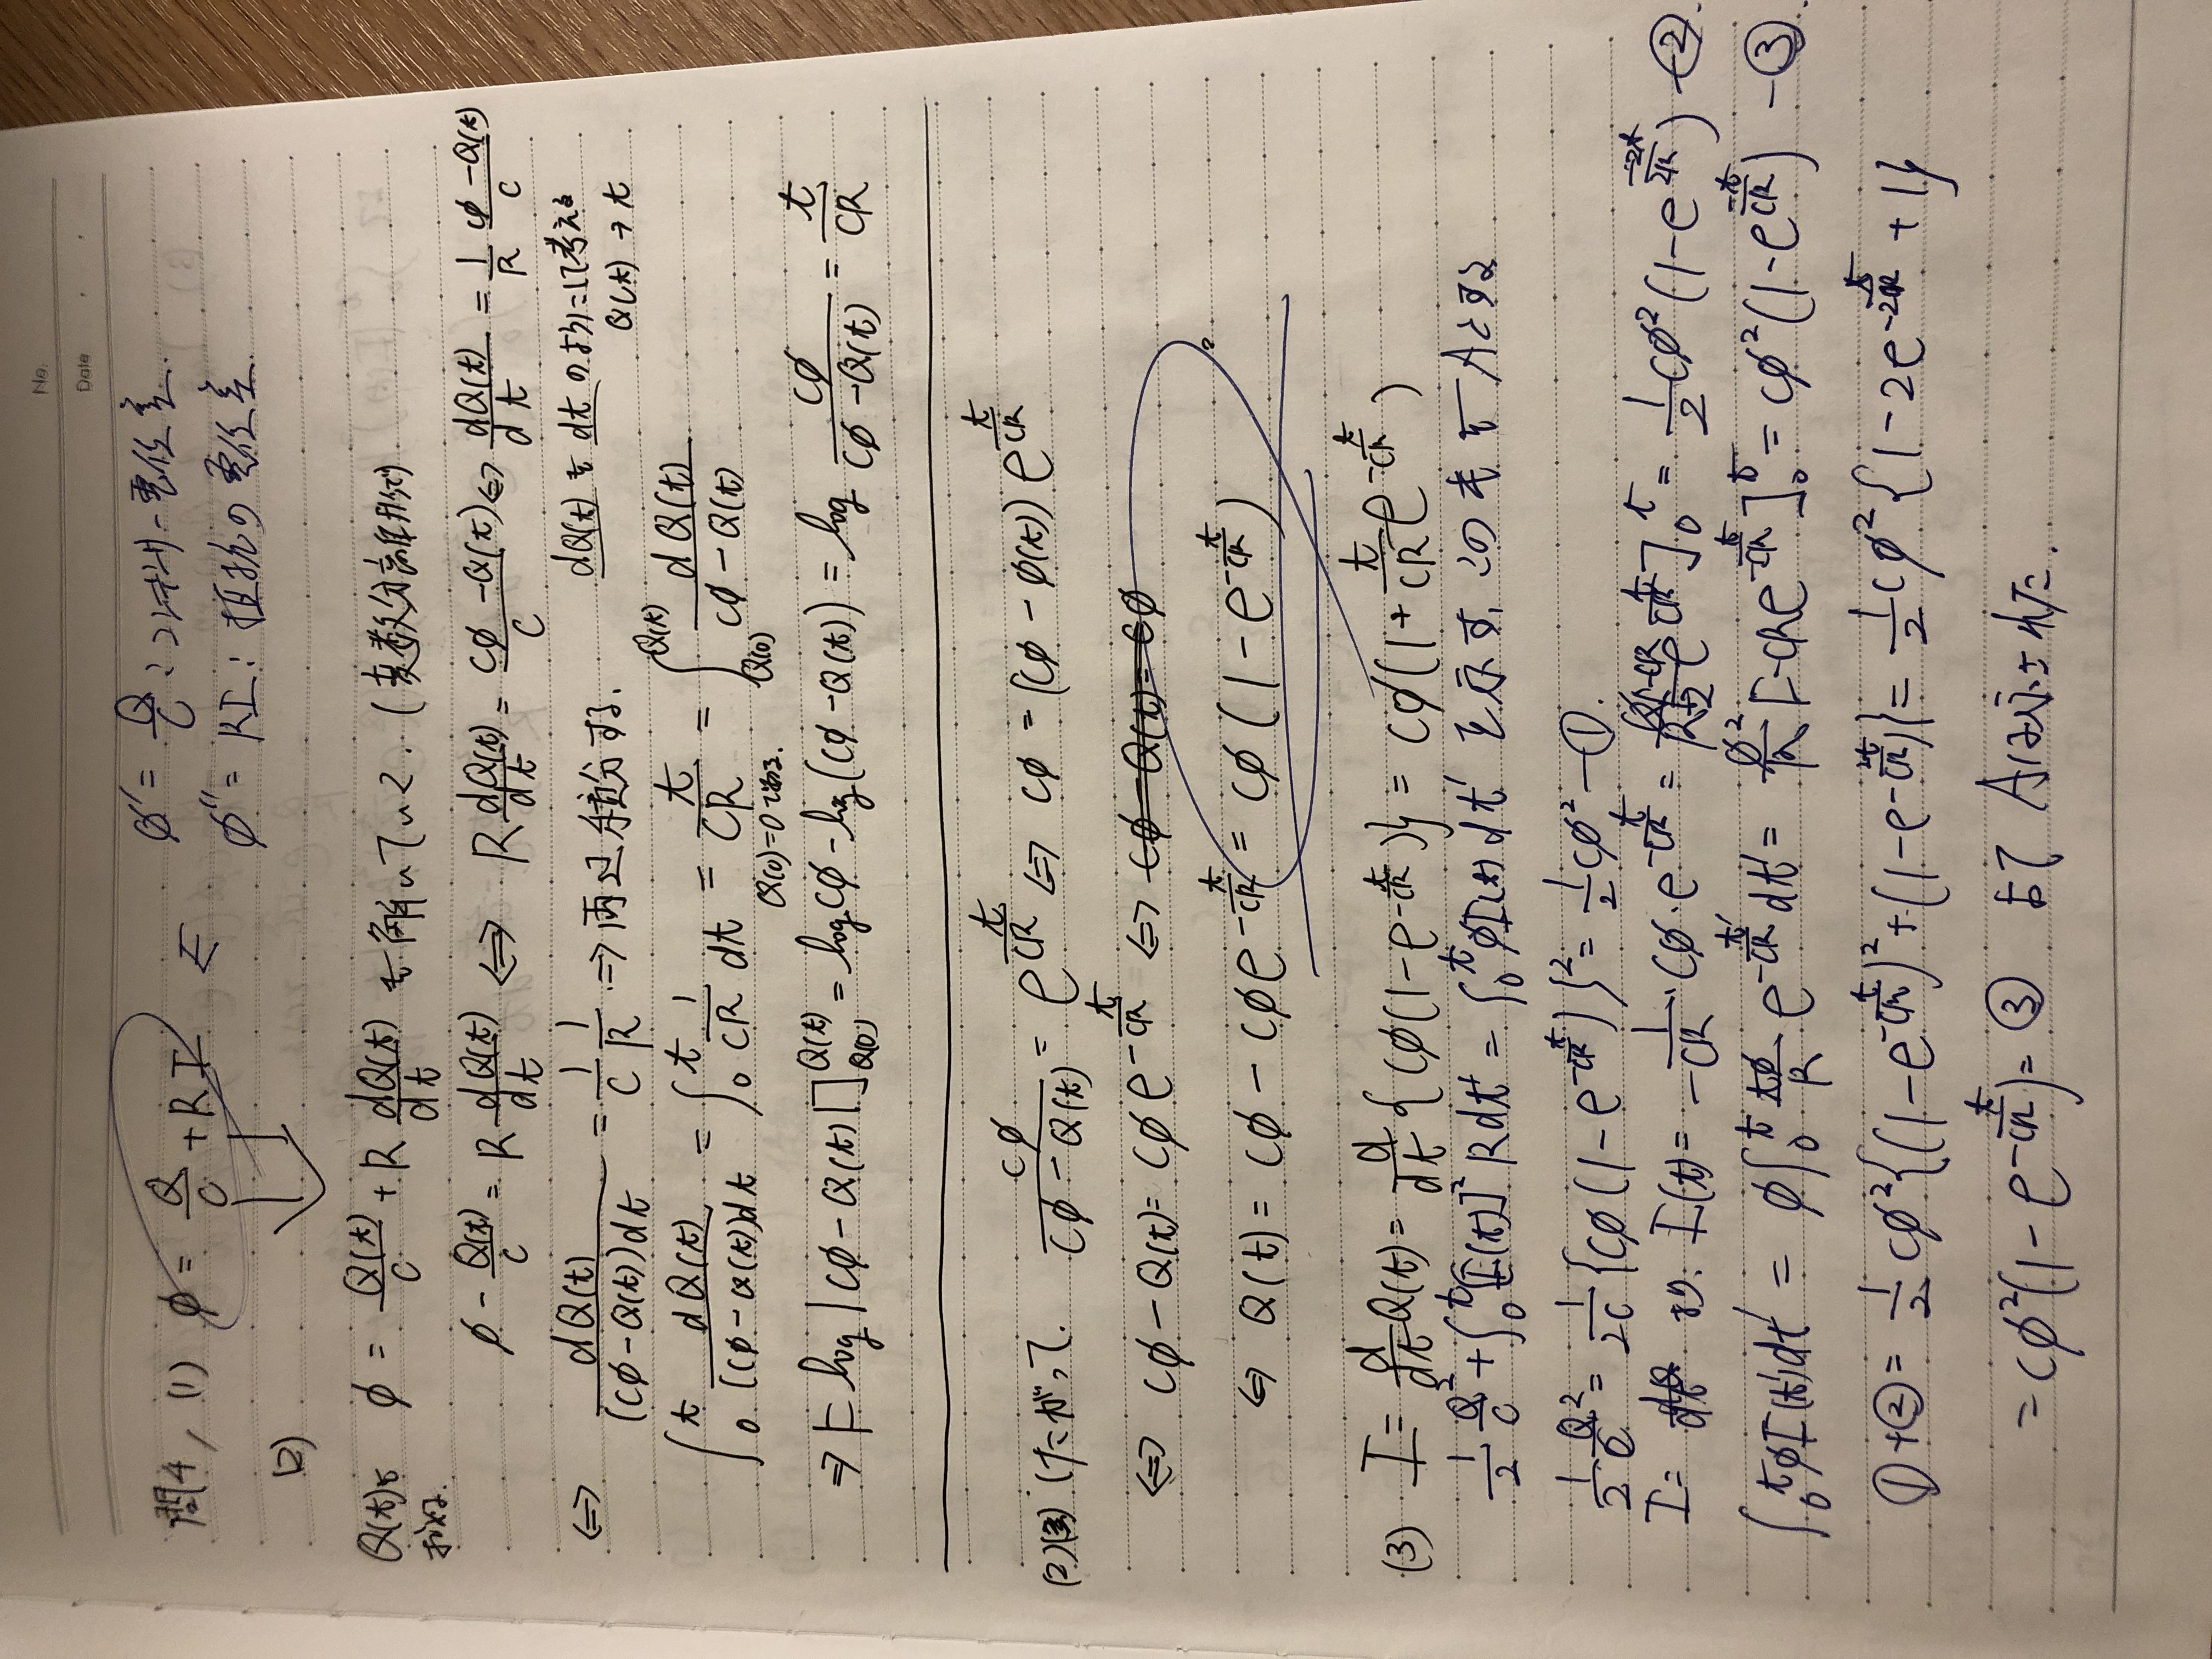 No.
Date
問4, (1) φ = Q/C + RI ⇐ φ' = Q/C : コンデンサーの電位差.
φ'' = RI : 抵抗の電位差.
(2)
Q(t)を求める. φ = Q(t)/C + R dQ(t)/dt を解いていく. (変数分離形で)
φ - Q(t)/C = R dQ(t)/dt ⇔ R dQ(t)/dt = (Cφ - Q(t))/C ⇔ dQ(t)/dt = 1/R (Cφ - Q(t))/C
⇔ dQ(t)/((Cφ - Q(t))dt) = 1/C 1/R ⇒ 両辺積分する. dQ(t)を dt のようにして考える
Q(t) → t
∫_0^t dQ(t)/((Cφ - Q(t))dt) = ∫_0^t 1/CR dt = t/CR = ∫_{Q(0)}^{Q(t)} dQ(t)/(Cφ - Q(t))
Q(0)=0である.
⇒ [-log|Cφ - Q(t)|]_{Q(0)}^{Q(t)} = logCφ - log(Cφ - Q(t)) = log Cφ/(Cφ - Q(t)) = t/CR
(2) したがって. Cφ/(Cφ - Q(t)) = e^{t/CR} ⇔ Cφ = (Cφ - φ(t)) e^{t/CR}
⇔ Cφ - Q(t) = Cφ e^{-t/CR} ⇔ Cφ - Q(t) = Cφ
⇔ Q(t) = Cφ - Cφe^{-t/CR} = Cφ(1 - e^{-t/CR})
(3) I = d/dt Q(t) = d/dt {Cφ(1 - e^{-t/CR})} = Cφ(1 + t/CR e^{-t/CR})
1/2 Q²/C + ∫_0^t [I(t)]² R dt' = ∫_0^t φI(t) dt' を示す, この式を A とする
1/2 Q²/C = 1/2C {Cφ(1 - e^{-t/CR})}² = 1/2 Cφ² —①.
I = dQ/dt より. I(t) = 1/-CR · Cφ · e^{-t/CR} = e^{t/CR}]_0^t = 1/2 Cφ²(1 - e^{-2t/CR}) —②.
∫_0^t φI(t')dt' = φ∫_0^t φ/R e^{-t'/CR} dt' = φ²/R [-CRe^{-t/CR}]_0^t = Cφ²(1 - e^{-t/CR}) —③.
①+② = 1/2 Cφ² {(1 - e^{-t/CR})² + (1 - e^{-2t/CR})} = 1/2 Cφ² {1 - 2e^{-2t/CR} + 1}
= Cφ²(1 - e^{-t/CR}) = ③ よって Aは示された.